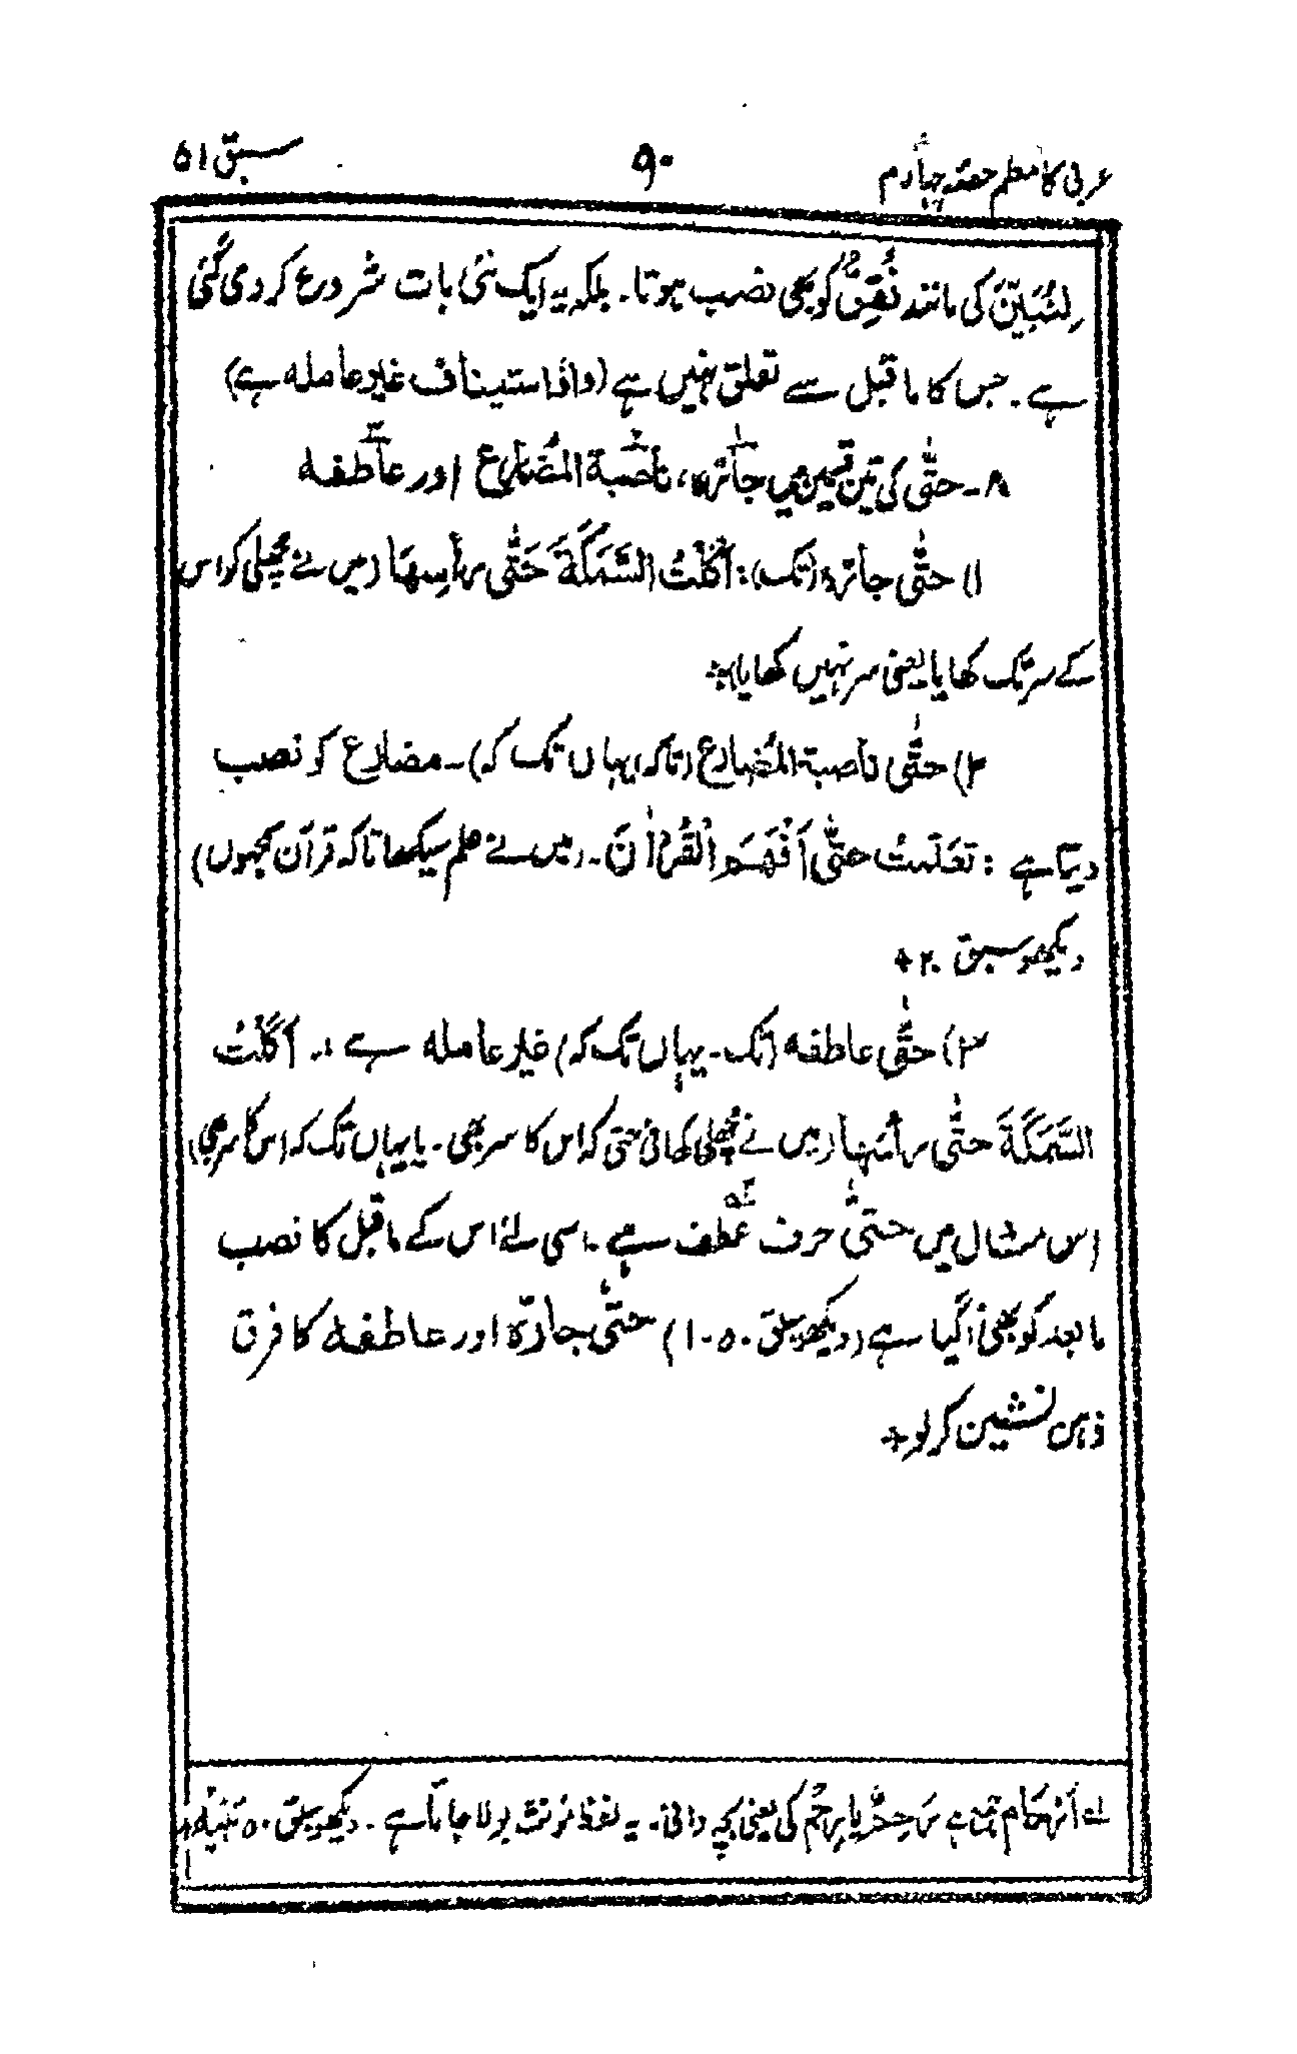 عربی کا معلم حصّہ چہارم ۹۰ سبق ۵۱
لِنُبَيِّنَ کی مانند نُقِرُّ کو بھی نصب ہوتا۔ بلکہ یہ ایک نئی بات شروع کر دی گئی
ہے۔ جس کا ماقبل سے تعلق نہیں ہے (واو استیناف غیر عاملہ ہے)
۸۔ حتّٰی کی تین قسمیں ہیں جارّہ، ناصبة المُضارع اور عاطفہ
۱) حتّٰی جارّہ (تک): أَكَلْتُ السَّمَكَةَ حَتّٰى رأسِهَا (میں نے مچھلی کو اس
کے سر تک کھایا یعنی سر نہیں کھایا)+
۲) حتّٰی ناصبة المُضارع (تاکہ، یہاں تک کہ)۔ مضارع کو نصب
دیتا ہے : تعَلّمتُ حتّٰى أَفْهَمَ الْقُرْاٰنَ۔ (میں نے علم سیکھا تاکہ قرآن سمجھوں)
دیکھو سبق ۲۰+
۳) حتّٰی عاطفہ (تک۔ یہاں تک کہ) غیر عاملہ ہے :۔ أَكَلْتُ
السَّمَكَةَ حتّٰى رأسَها (میں نے مچھلی کھائی حتی کہ اس کا سر بھی۔ یا یہاں تک کہ اس کا سر بھی)
اس مثال میں حتّٰی حرف عطف ہے۔ اسی لئے اس کے ماقبل کا نصب
مابعد کو بھی آگیا ہے (دیکھو سبق ۵۰۔۱۰) حتّٰی جارّہ اور عاطفہ کا فرق
ذہن نشین کرلو+
لہ أَرْحَام جمع ہے رَحِمٌ یا رِحْمٌ کی یعنی بچہ دانی۔ یہ لفظ مؤنث بولا جاتا ہے۔ دیکھو سبق ۵۰ تنبیہ